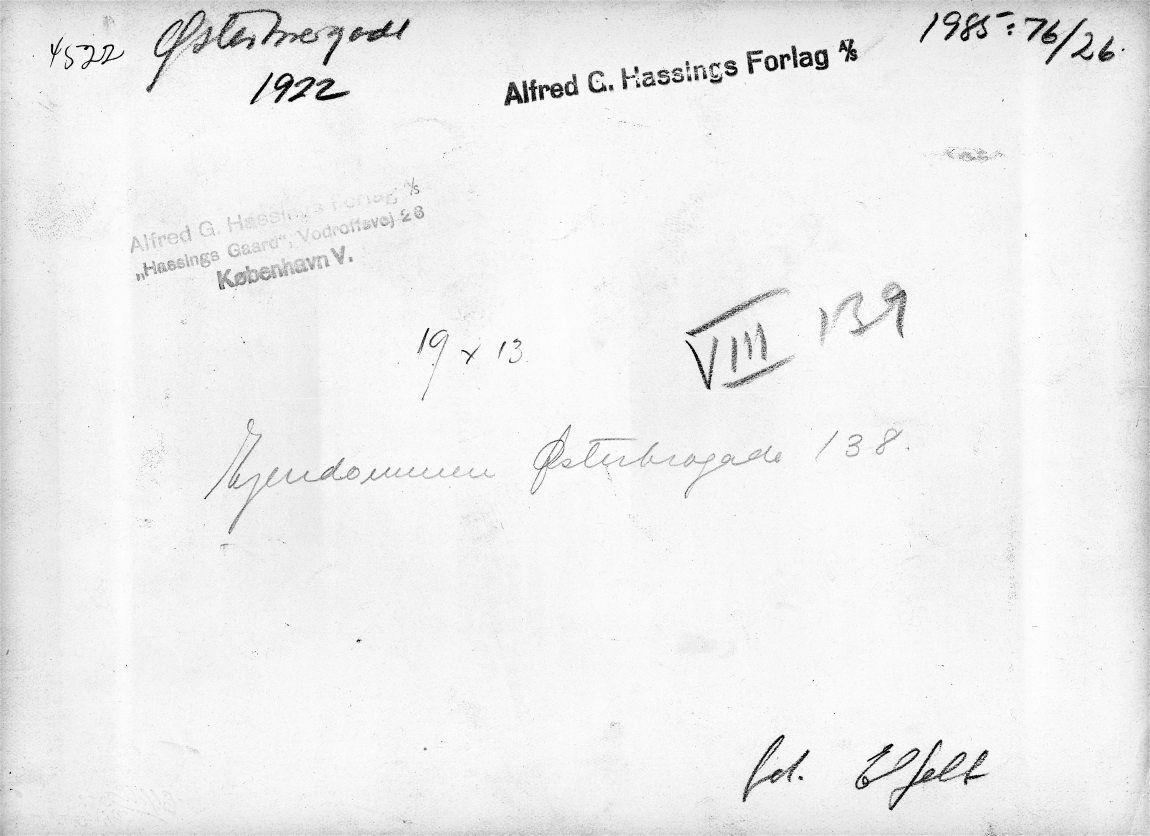 4522 Østerbrogade 1985:76/26.
1922
Alfred G. Hassings Forlag A/S
Alfred G. Hassings Forlag A/S
„Hassings Gaard", Vodroffsvej 26
København V.
VIII 139
19 x 13
Ejendommen Østerbrogade 138.
fot. Elfelt